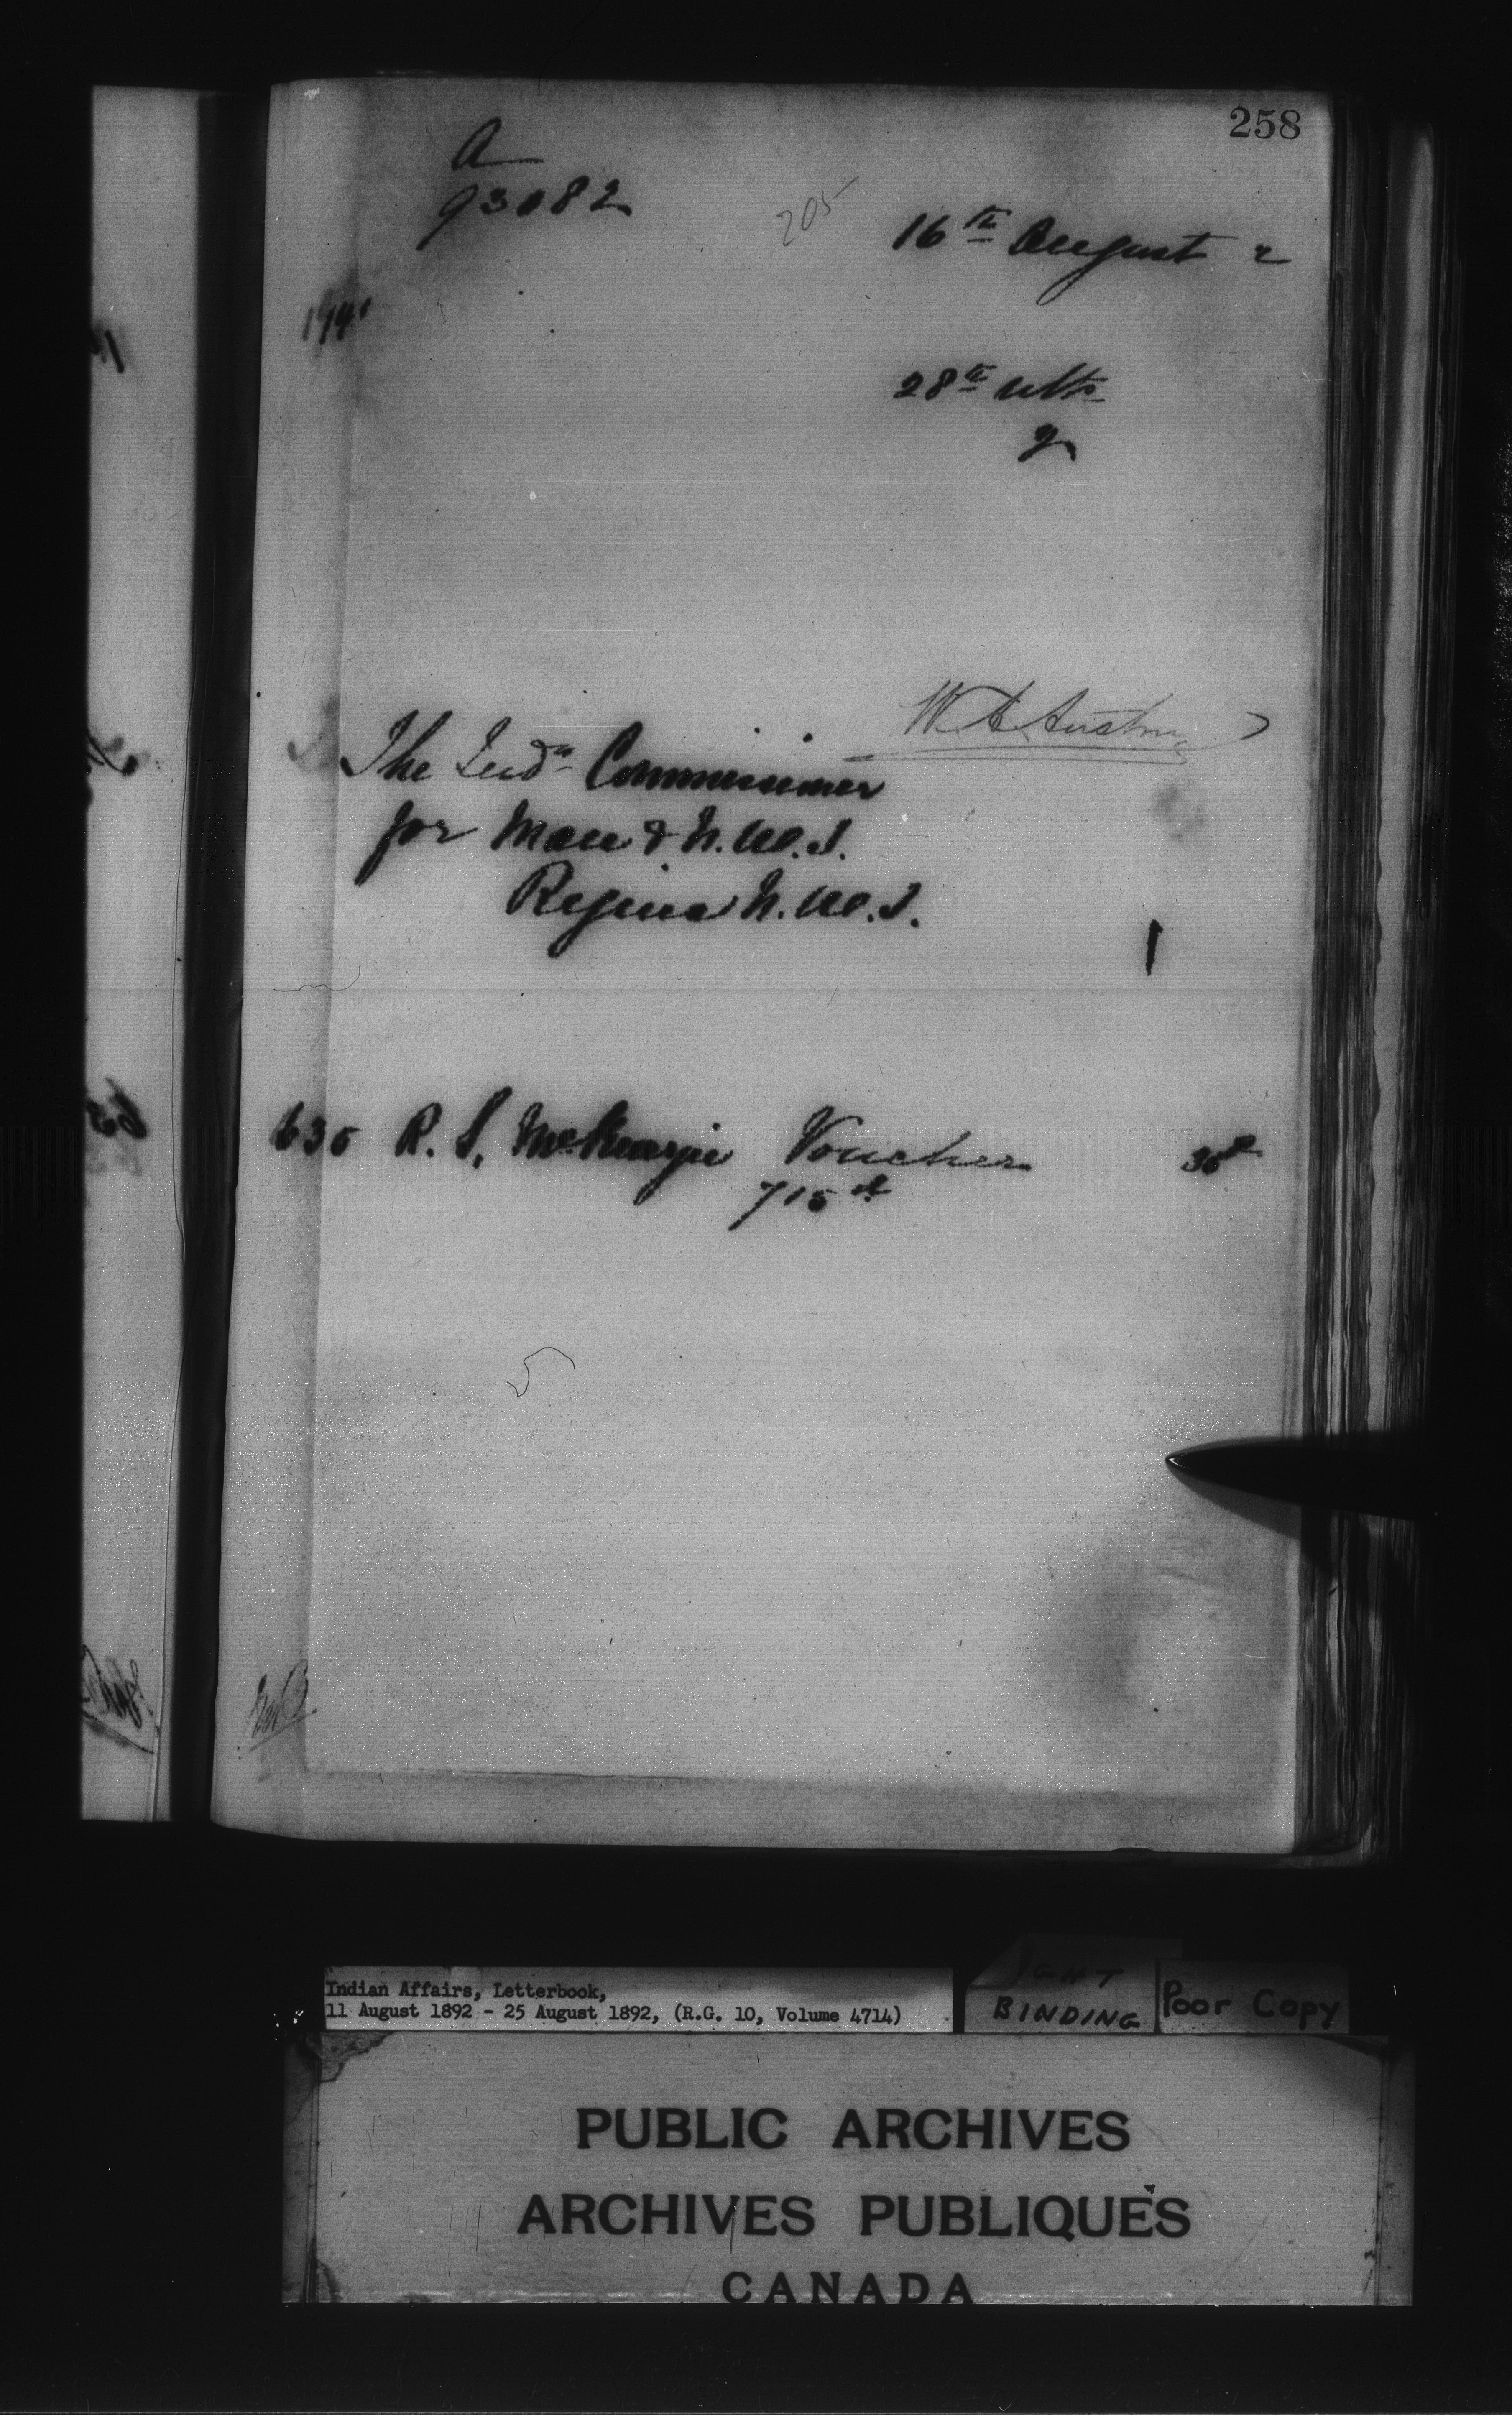 258
A
93082
205
16th August 2
1941
28th ulto
2
W A Austin
The Indn Commissioner
for Man & N.W.T.
Regina N.W.T.
1
630 R. S. McKenzie Voucher
715
Indian Affairs, Letterbook,
11 August 1892 - 25 August 1892, (R.G. 10, Volume 4714)
BINDING
Poor Copy
PUBLIC ARCHIVES
ARCHIVES PUBLIQUES
CANADA